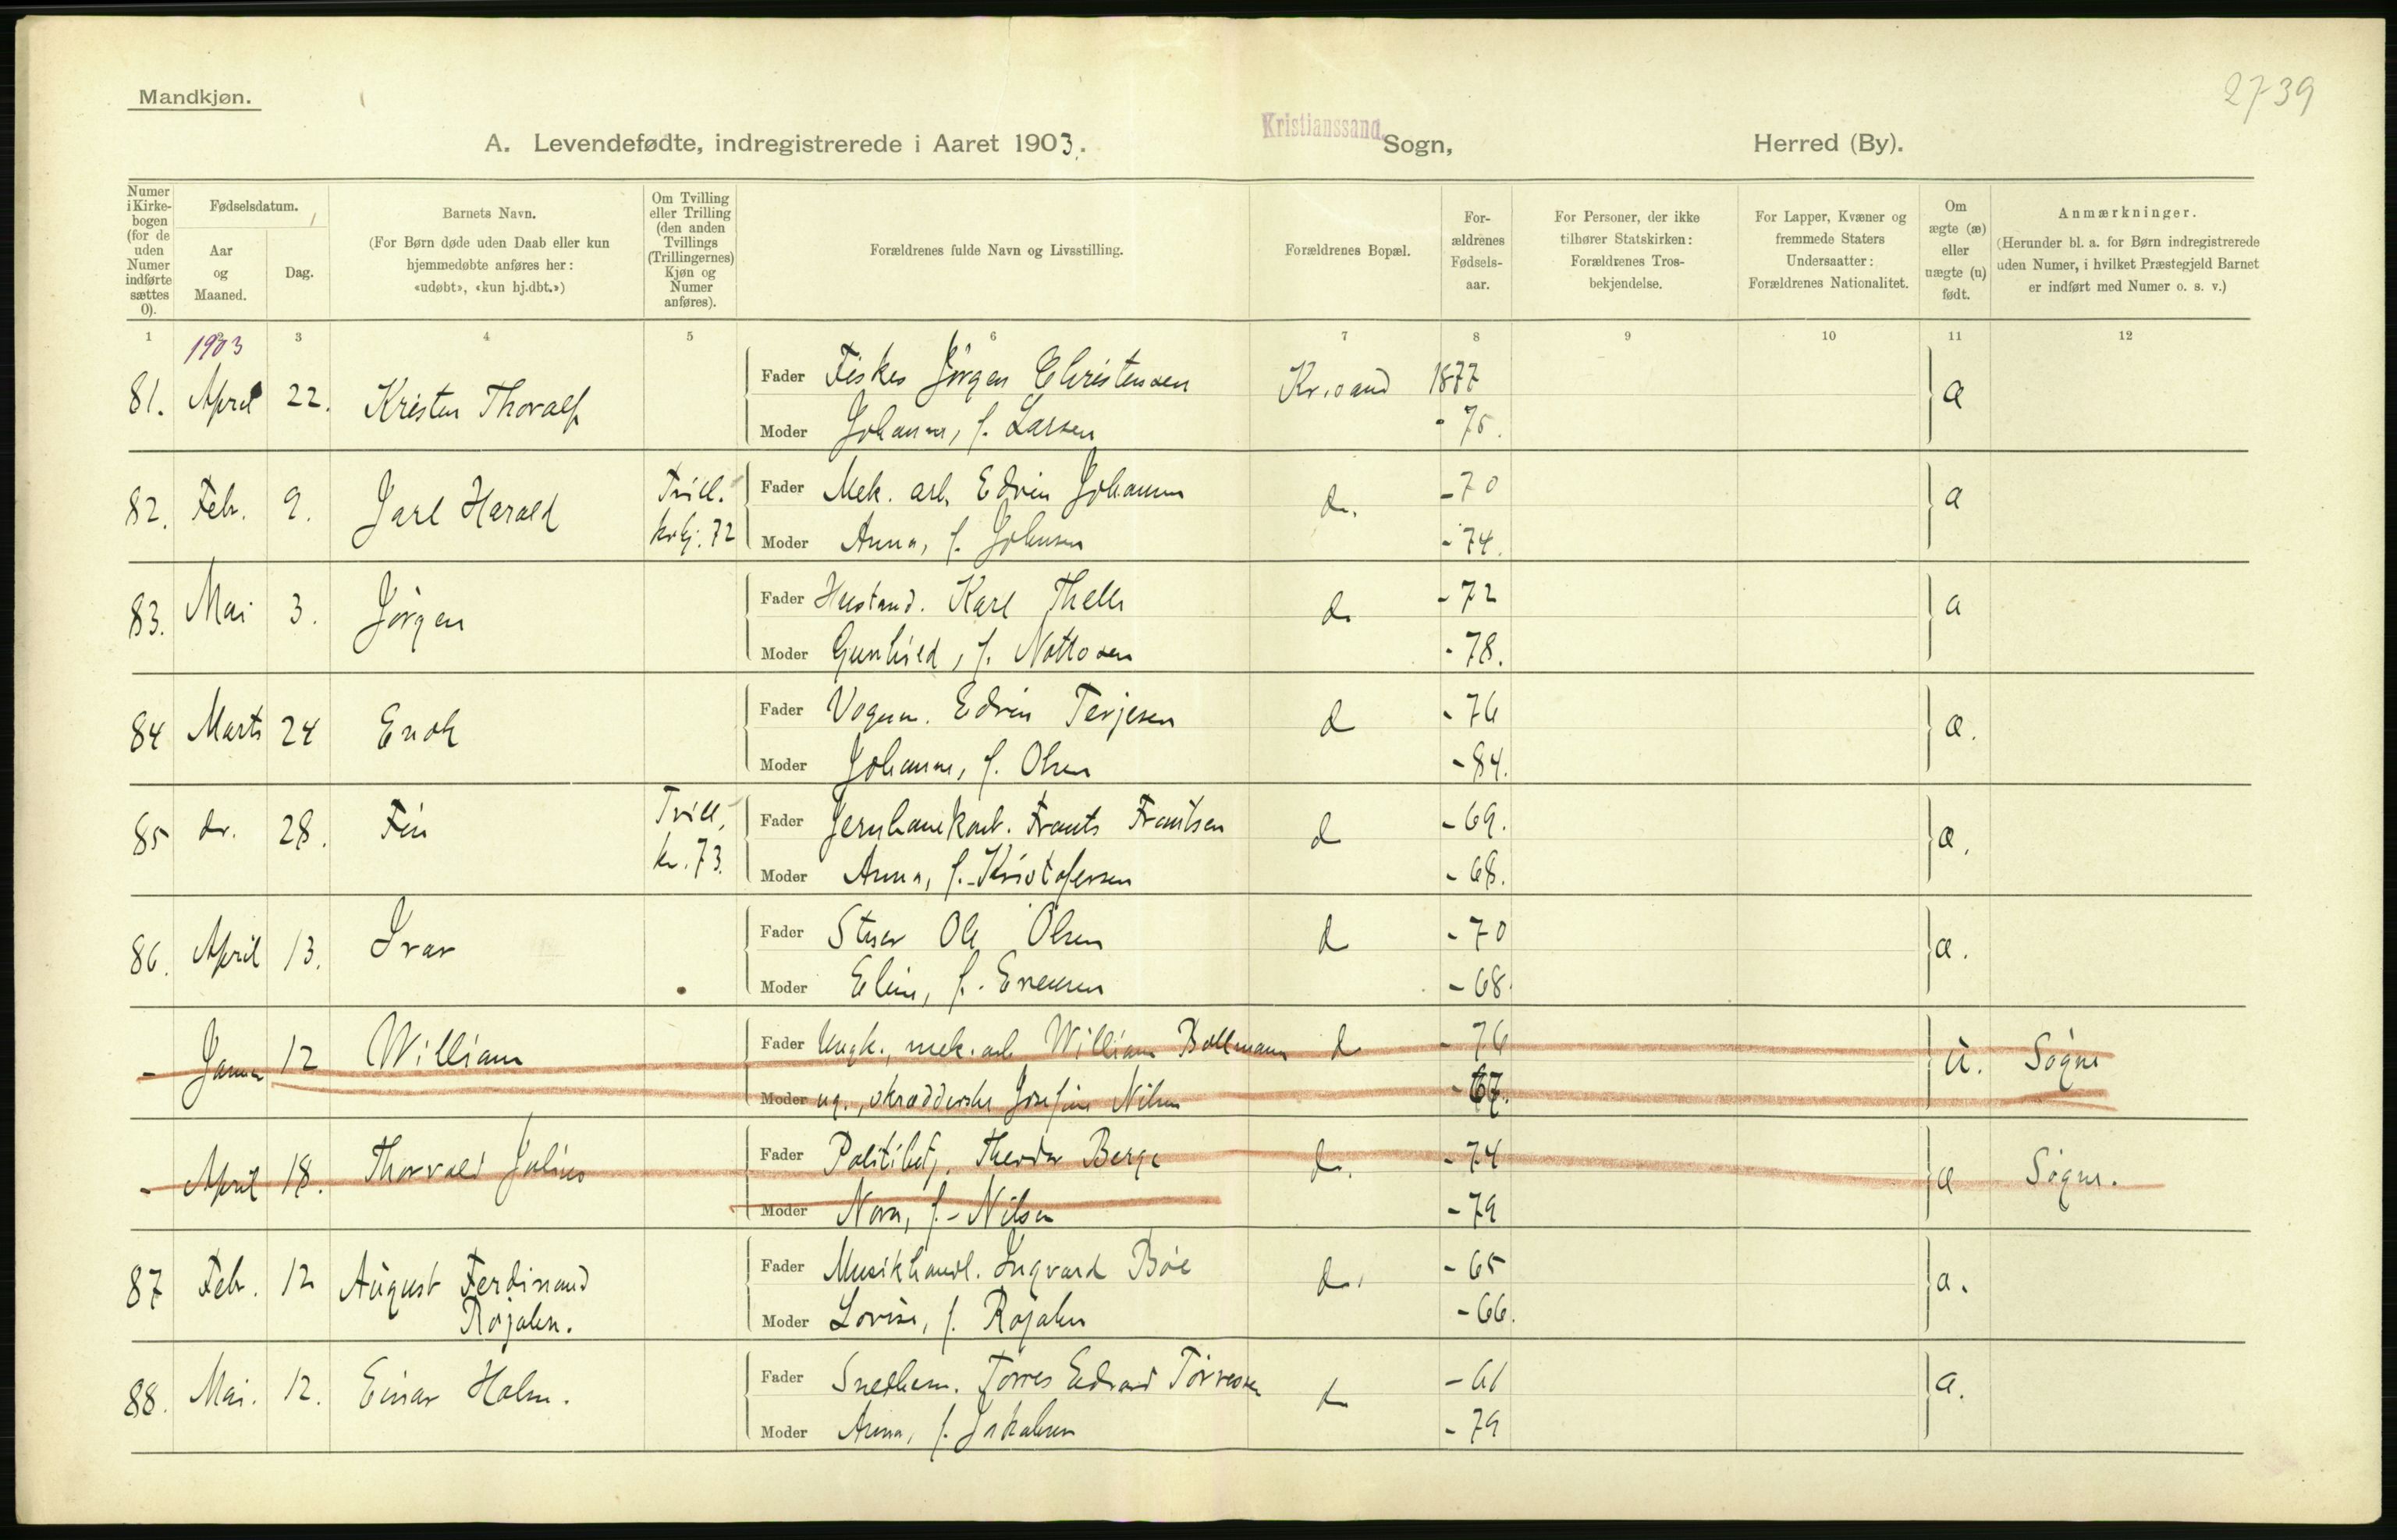 2739
Mandkjøn.
A. Levendefødte, indregistrerede i Aaret 1903. Kristianssand. Sogn, Herred (By).
Numer i Kirke-bogen (for de uden Numer indførte sættes 0).
Fødselsdatum.
Aar og Maaned.
Dag.
Barnets Navn.
(For Børn døde uden Daab eller kun hjemmedøbte anføres her: «udøbt», «kun hj.dbt.»)
Om Tvilling eller Trilling (den anden Tvillings (Trillingernes) Kjøn og Numer anføres).
Forældrenes fulde Navn og Livsstilling.
Forældrenes Bopæl.
For-ældrenes Fødsels-aar.
For Personer, der ikke tilhører Statskirken: Forældrenes Tros-bekjendelse.
For Lapper, Kvæner og fremmede Staters Undersaatter: Forældrenes Nationalitet.
Om ægte (æ) eller uægte (u) født.
Anmærkninger.
(Herunder bl. a. for Børn indregistrerede uden Numer, i hvilket Præstegjeld Barnet er indført med Numer o. s. v.)
1 3 4 5 6 7 8 9 10 11 12
1903
81. April 22. Kristen Thoralf Fader Fisker Jörgen Christensen Kr.sand 1877 æ
Moder Johanne, f. Larsen - 75.
82. Feb. 9. Jarl Harald Tvill. kvkj. 72 Fader Mek. arb. Edvin Johannes d. - 70 æ
Moder Anna, f. Johnsen - 74.
83. Mai 3. Jörgen Fader Karl d. - 72 æ
Moder Gunhild, f. - 78.
84 Marts 24 Enok Fader Vogнm. Edvin Terjesen d - 76 æ.
Moder Johanne, f. Olsen - 84.
85 do. 28. Fin Tvill, kv. 73. Fader Jernbanekont. Frants Frantsen d - 69. æ.
Moder Anna, f. Kristofersen - 68.
86. April 13. Ivar Fader Stuer Ole Olsen d - 70 æ.
Moder Eline, f. Evensen - 68.
- Januar 12 William Fader Ungk., mek. arb William Bollmann d - 76 u. Søgne
Moder ug., skrædderske Josefine Nilsen - 67.
- April 18. Thorvald Julius Fader Politibetj. Theodor Berge d. - 74 æ Søgne.
Moder Nora, f. Nilsen - 79
87 Feb. 12 August Ferdinand Fader Musikhandl. Ingvard Bøe d. - 65 æ.
Röjahn. Moder Lovise, f. Röjahn - 66.
88. Mai. 12. Einar Holm. Fader Snedkerm. Törres Edvard Törresen d - 61 æ.
Moder Anna, f. Jakobsen - 79